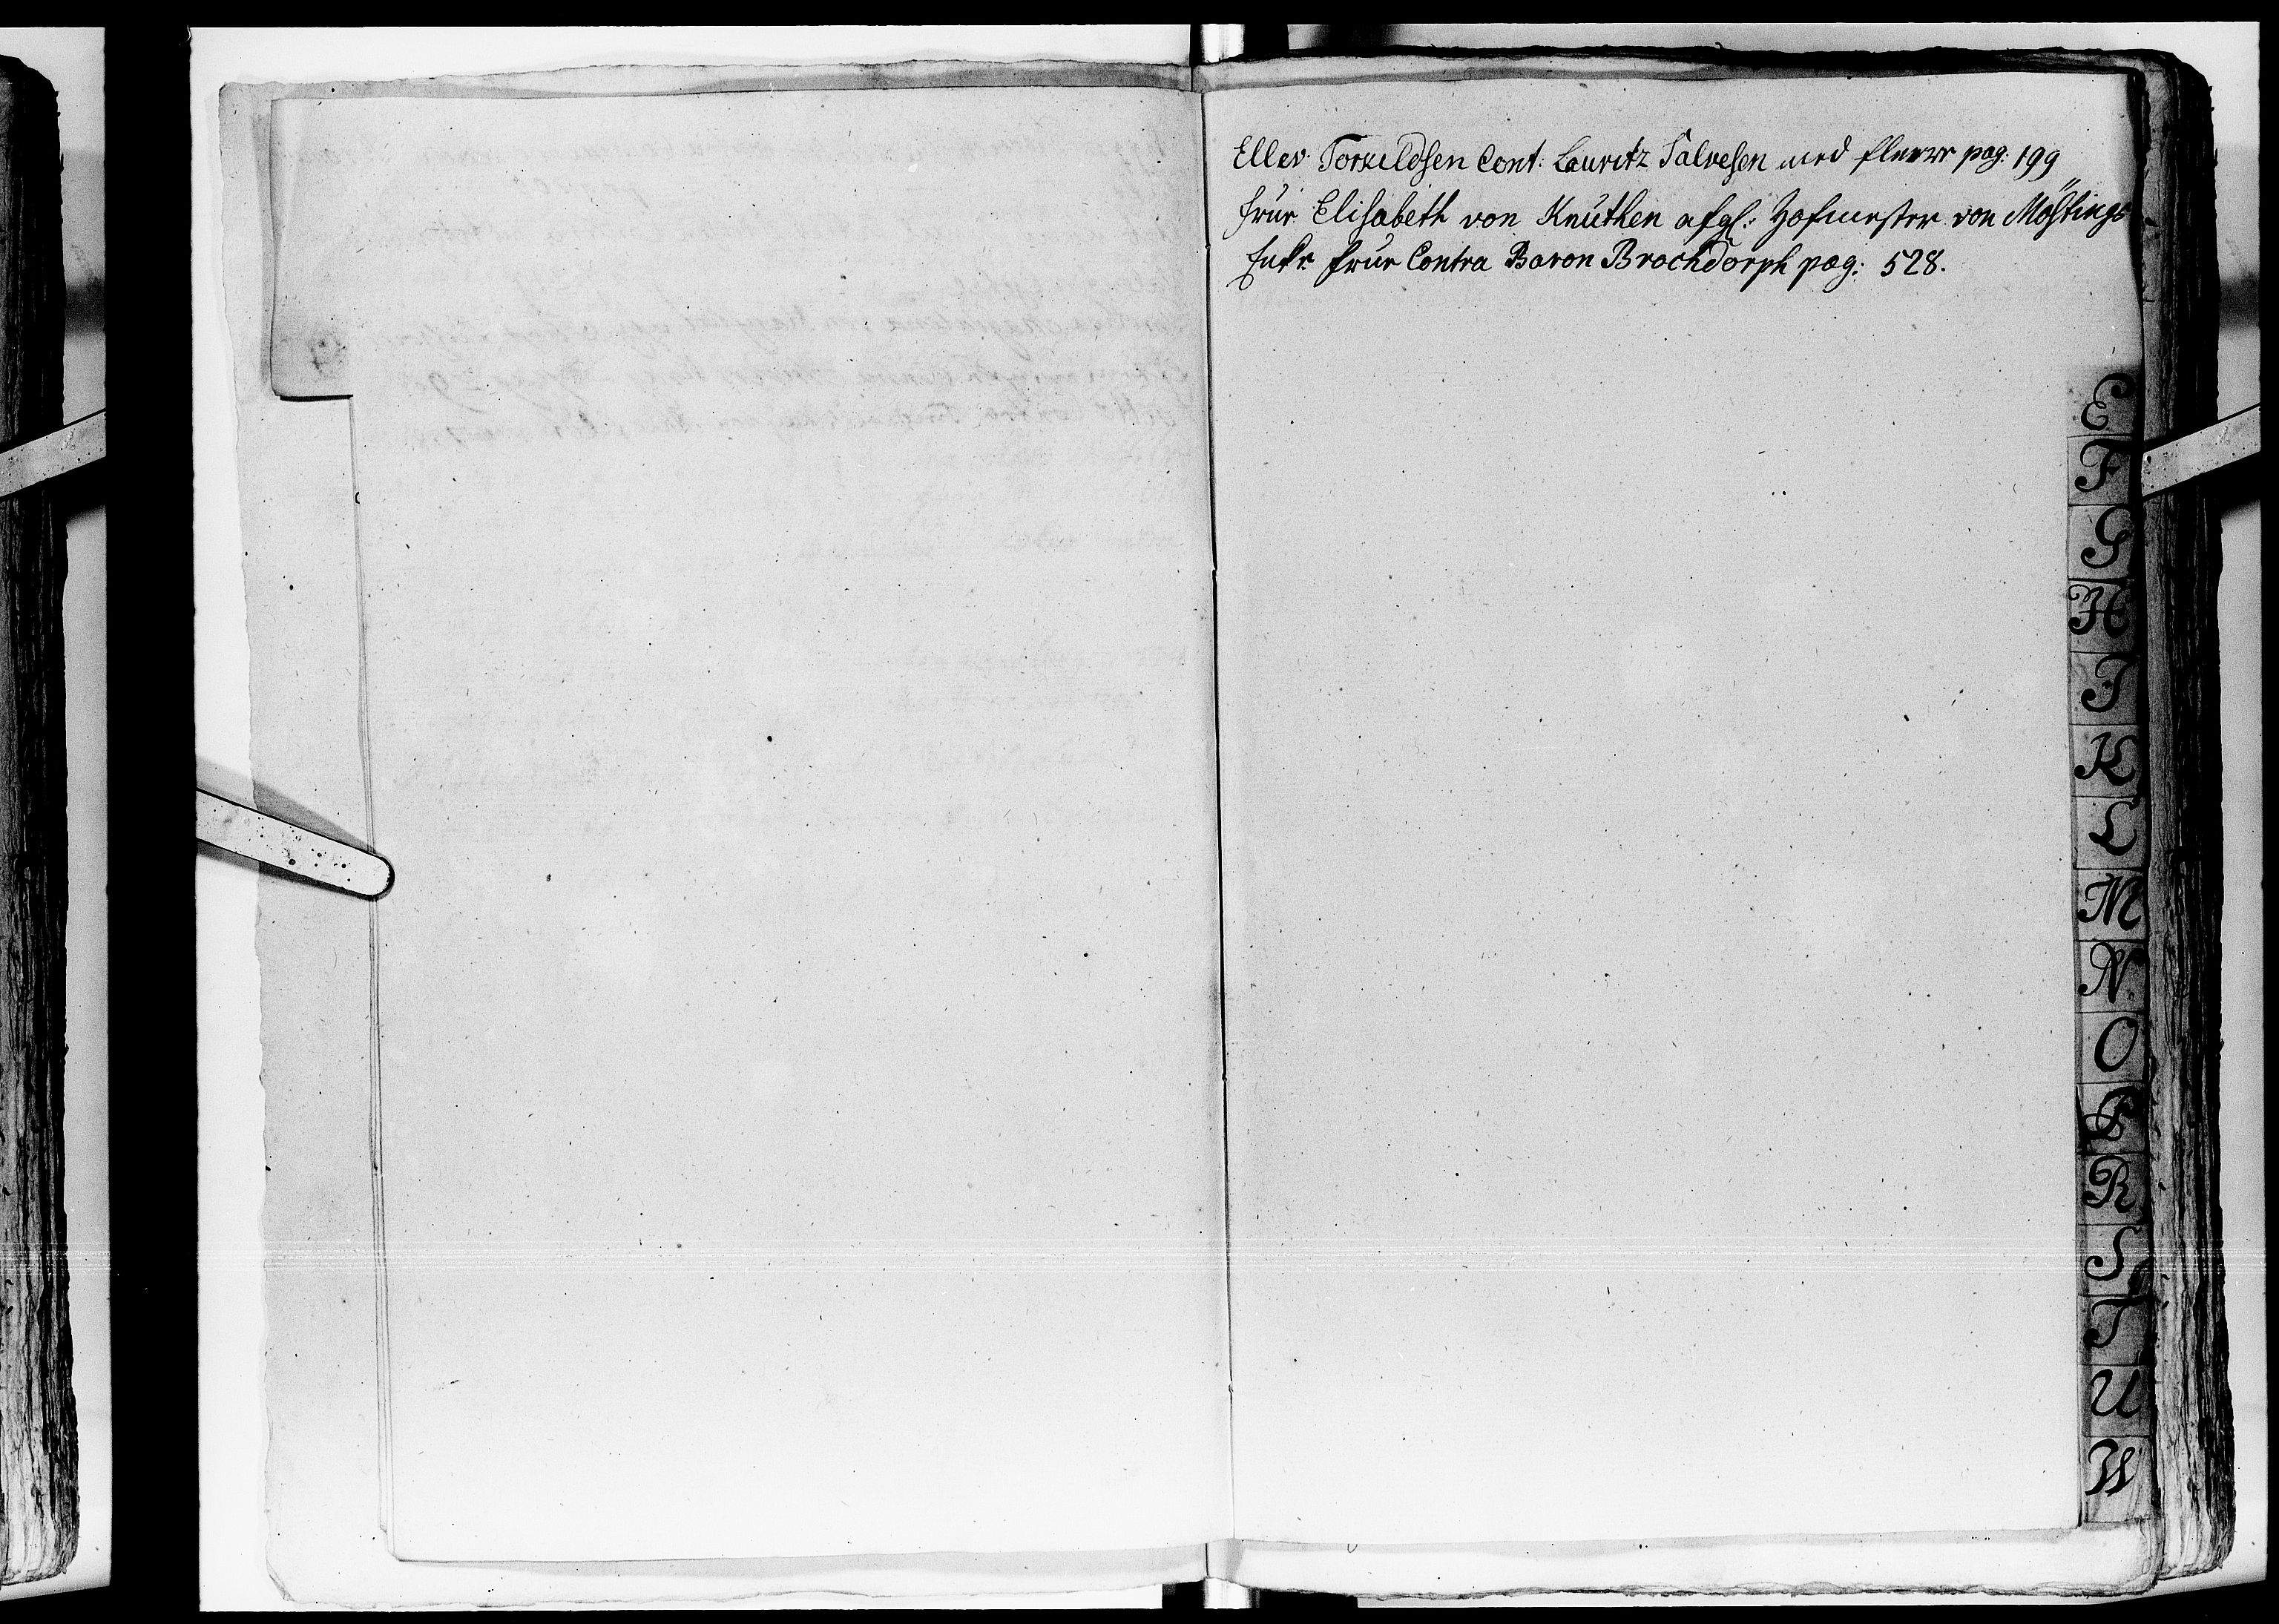 Ellev Torkildsen Cont: Lauritz Salvesen med fleere pag: 199
Frue Elisabeth von Knuthen afgl: Hofmester von Möstings
Enke Frue Contra Baron Brochdorph pag: 528.
E
F
G
H
I
K
L
M
N.
O
P
R
S
T
U
W